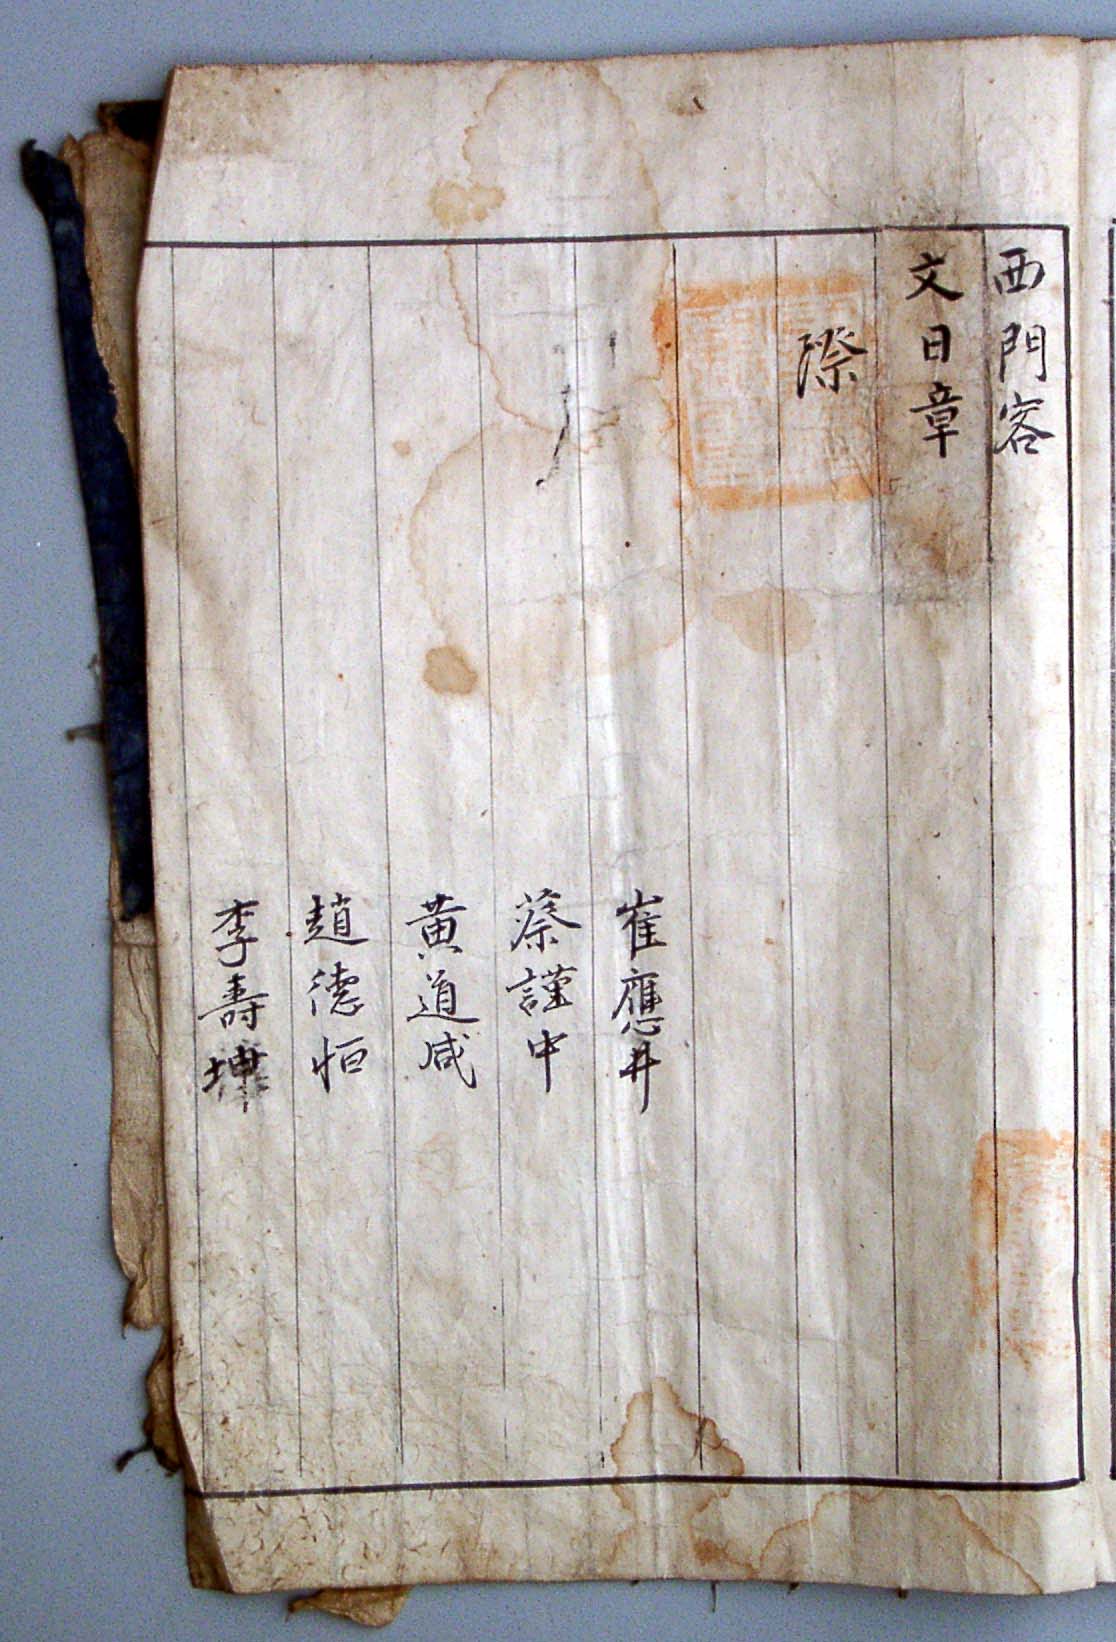 西門容
文日章
際
崔應井
蔡謹中
黃道咸
趙德恒
李壽